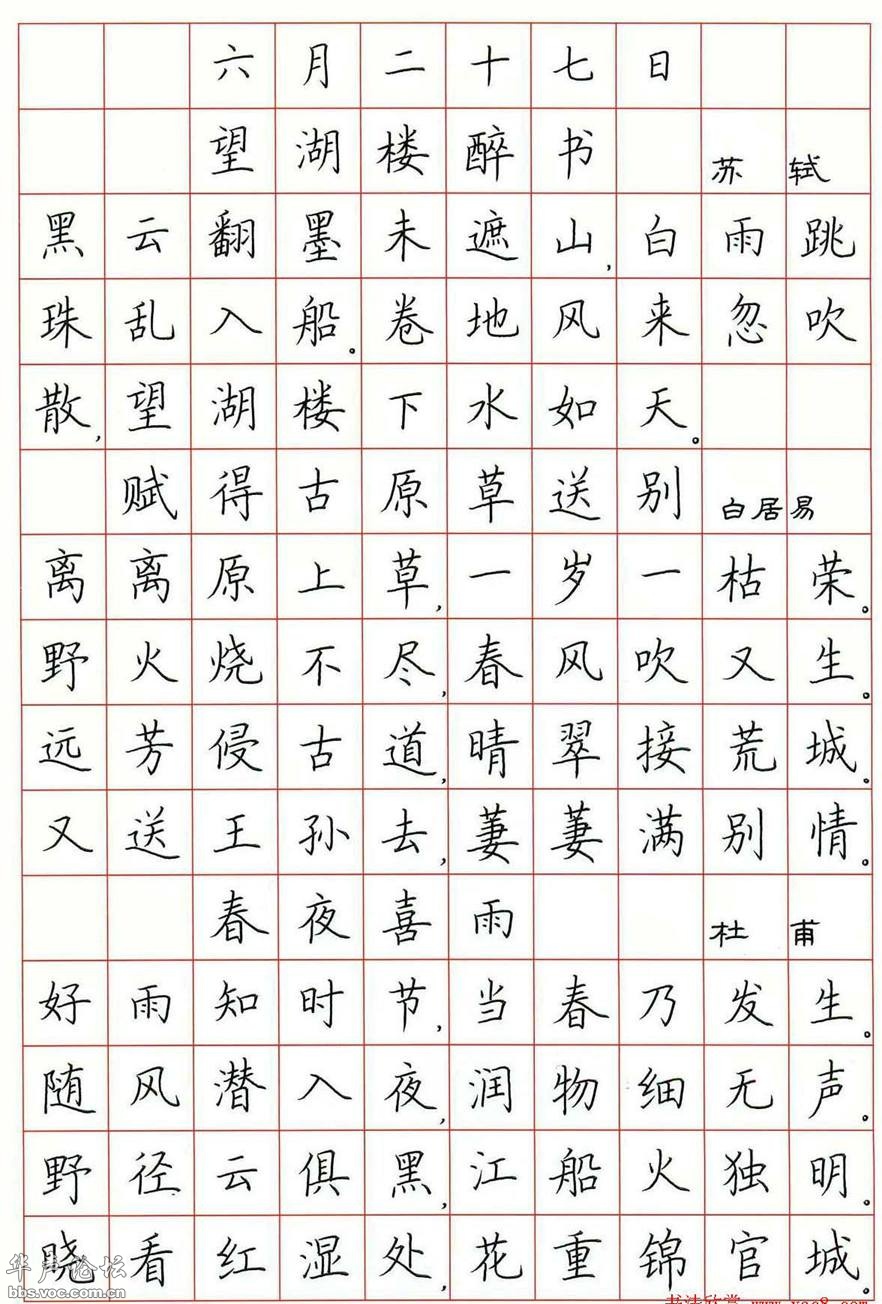 六月二十七日
望湖楼醉书 苏轼
黑云翻墨未遮山,白雨跳
珠乱入船。卷地风来忽吹
散,望湖楼下水如天。
赋得古原草送别 白居易
离离原上草,一岁一枯荣。
野火烧不尽,春风吹又生。
远芳侵古道,晴翠接荒城。
又送王孙去,萋萋满别情。
春夜喜雨 杜甫
好雨知时节,当春乃发生。
随风潜入夜,润物细无声。
野径云俱黑,江船火独明。
晓看红湿处,花重锦官城。
华声论坛
bbs.voc.com.cn